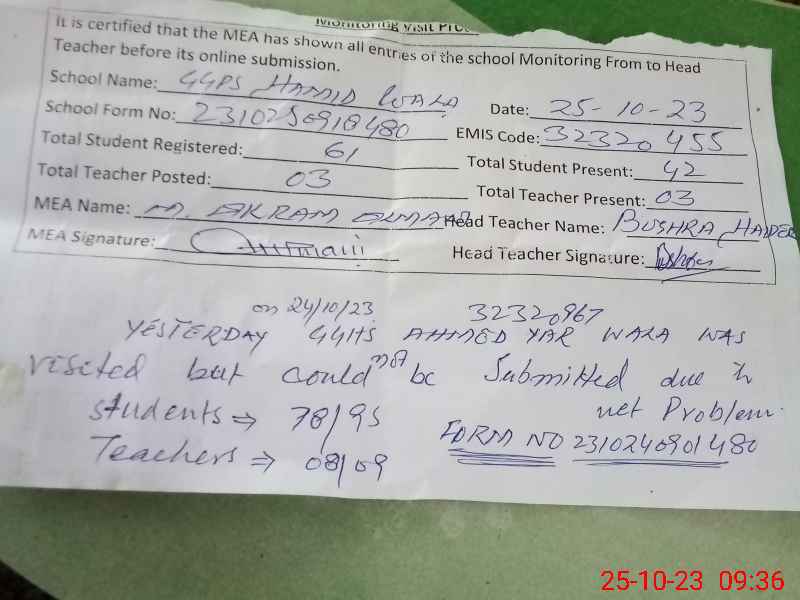 Monitoring Visit Pro
It is certified that the MEA has shown all entries of the school Monitoring From to Head
Teacher before its online submission.
School Name: GGPS HAMID WALA
Date: 25-10-23
School Form No: 2310250918480
EMIS Code: 32320455
Total Student Registered: 61
Total Student Present: 42
Total Teacher Posted: 03
Total Teacher Present: 03
MEA Name: M. AKRAM
Head Teacher Name: BUSHRA HAIDER
MEA Signature:
Head Teacher Signature:
on 24/10/23 32320967
YESTERDAY GGHS AHMED YAR WALA WAS
visited but could not be Submitted due to
net Problem.
Students ⇒ 78/95
FORM NO 2310240901480
Teachers ⇒ 08/09
25-10-23 09:36